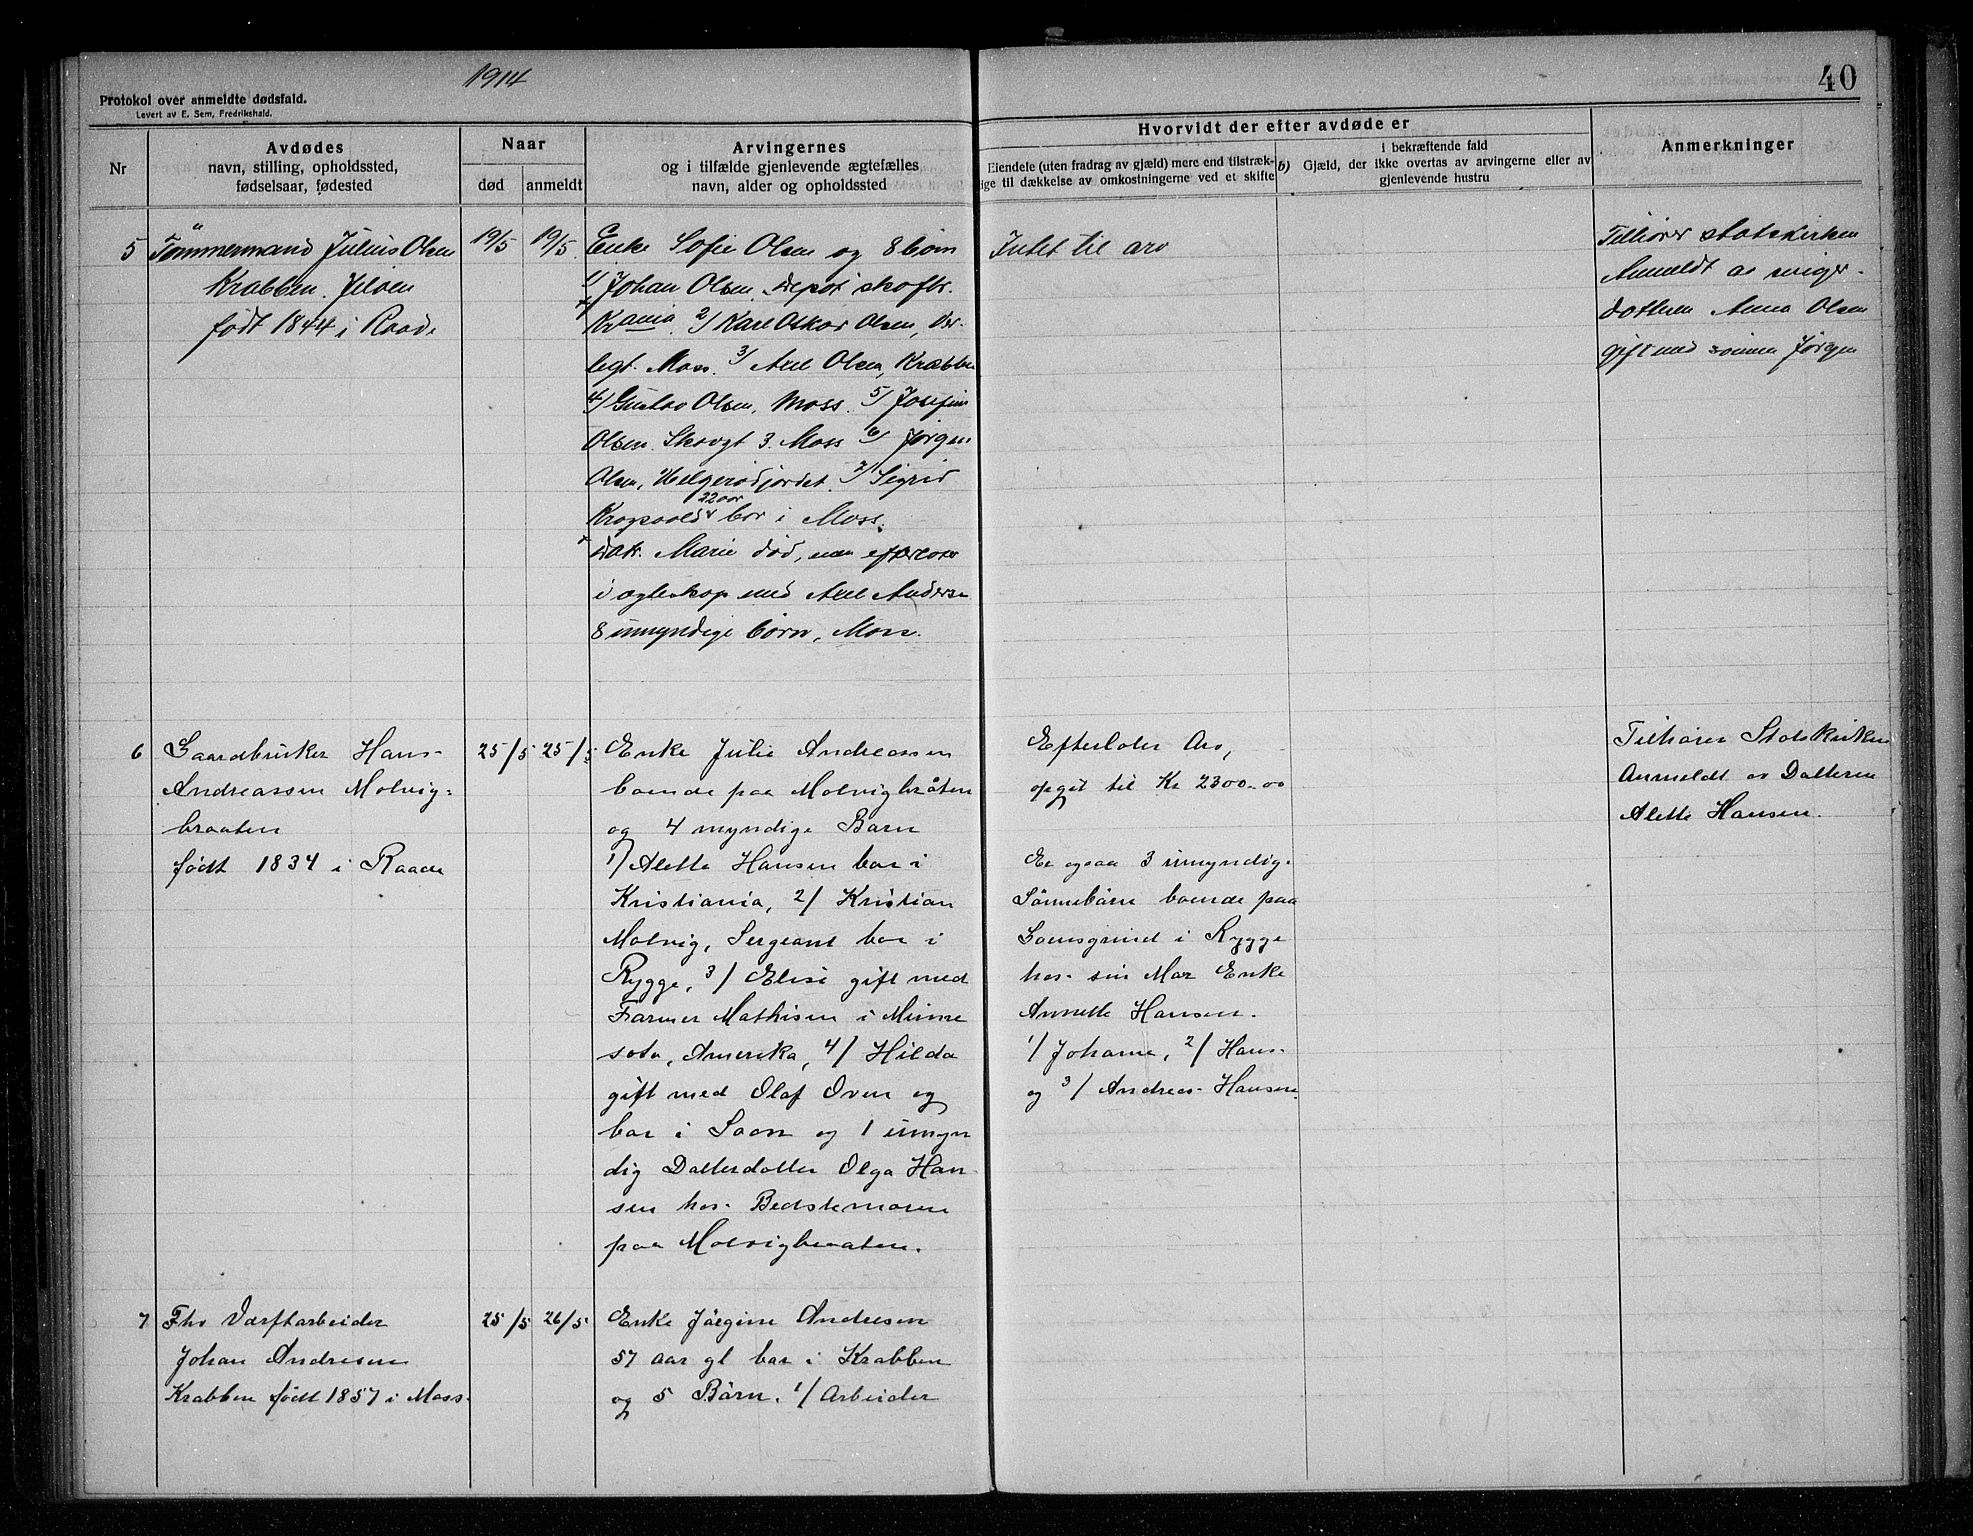 1914
40
Protokol over anmeldte dødsfald.
Levert av E. Sem, Fredrikshald.
Nr
Avdødes
navn, stilling, opholdssted,
fødselsaar, fødested
Naar
død
anmeldt
Arvingernes
og i tilfælde gjenlevende ægtefælles
navn, alder og opholdssted
Hvorvidt der efter avdøde er
Eiendele (uten fradrag av gjæld) mere end tilstræk-
ige til dækkelse av omkostningerne ved et skifte
b)
i bekræftende fald
Gjæld, der ikke overtas av arvingerne eller av
gjenlevende hustru
Anmerkninger
5
Tømmermand Julius Olsen
Krabben. Jeløen
født 1844 i Raade
19/5
19/5
Enke Sofie Olsen og 8 børn
1/ Johan Olsen, skofbr.
Krania. 2/ Karl Oskar Olsen, Ver-
legt. Moss. 3/ Axel Olsen, Krabben
4/ Gustav Olsen, Moss. 5/ Josefine
Olsen. Skovgt 3. Moss 6/ Jørgen
Olsen, Helgerødjordet. 7/ Sigrid
22 aar
bor i Moss.
datr. Marie død, men efterlater
i egteskap med Axel Anderse
8 umyndige børn, Moss.
Intet til arv
Tilhører statskirken
Anmeldt av sviger-
datteren Anna Olsen
gift med sønnen Jørgen
6
Gaardbruker Hans
Andreassen Molvig-
braaten
født 1834 i Raade
25/5
25/5
Enke Julie Andreassen
boende paa Molvigbråten
og 4 myndige Barn
1/ Alette Hansen bor i
Kristiania, 2/ Kristian
Molvig, Sergeant bor i
Rygge, 3/ Elise gift med
Farmer Mathisen i Minne
sota, Amerika, 4/ Hilda
gift med Olaf Oven og
bor i Soon og 1 umyn
dig Datterdatter Olga Han
sen hos Bedstemoren
paa Molvigbraaten.
Efterlater Arv,
opgit til Kr 2300.00
Er ogsaa 3 umyndig-
Sønnebørn boende paa
i Rygge
hos sin Mor Enke
Annette Hansen.
1/ Johanne, 2/ Hans
og 3/ Andreas Hansen
Tilhører Statskirken
Anmeldt av Datteren
Alette Hansen.
7
Fhv Værftarbeider
Johan Andresen
Krabben født 1857 i Moss.
25/5
26/5
Enke Jørgine Andresen
57 aar gl bor i Krabben
og 5 Børn. 1/ Arbeider